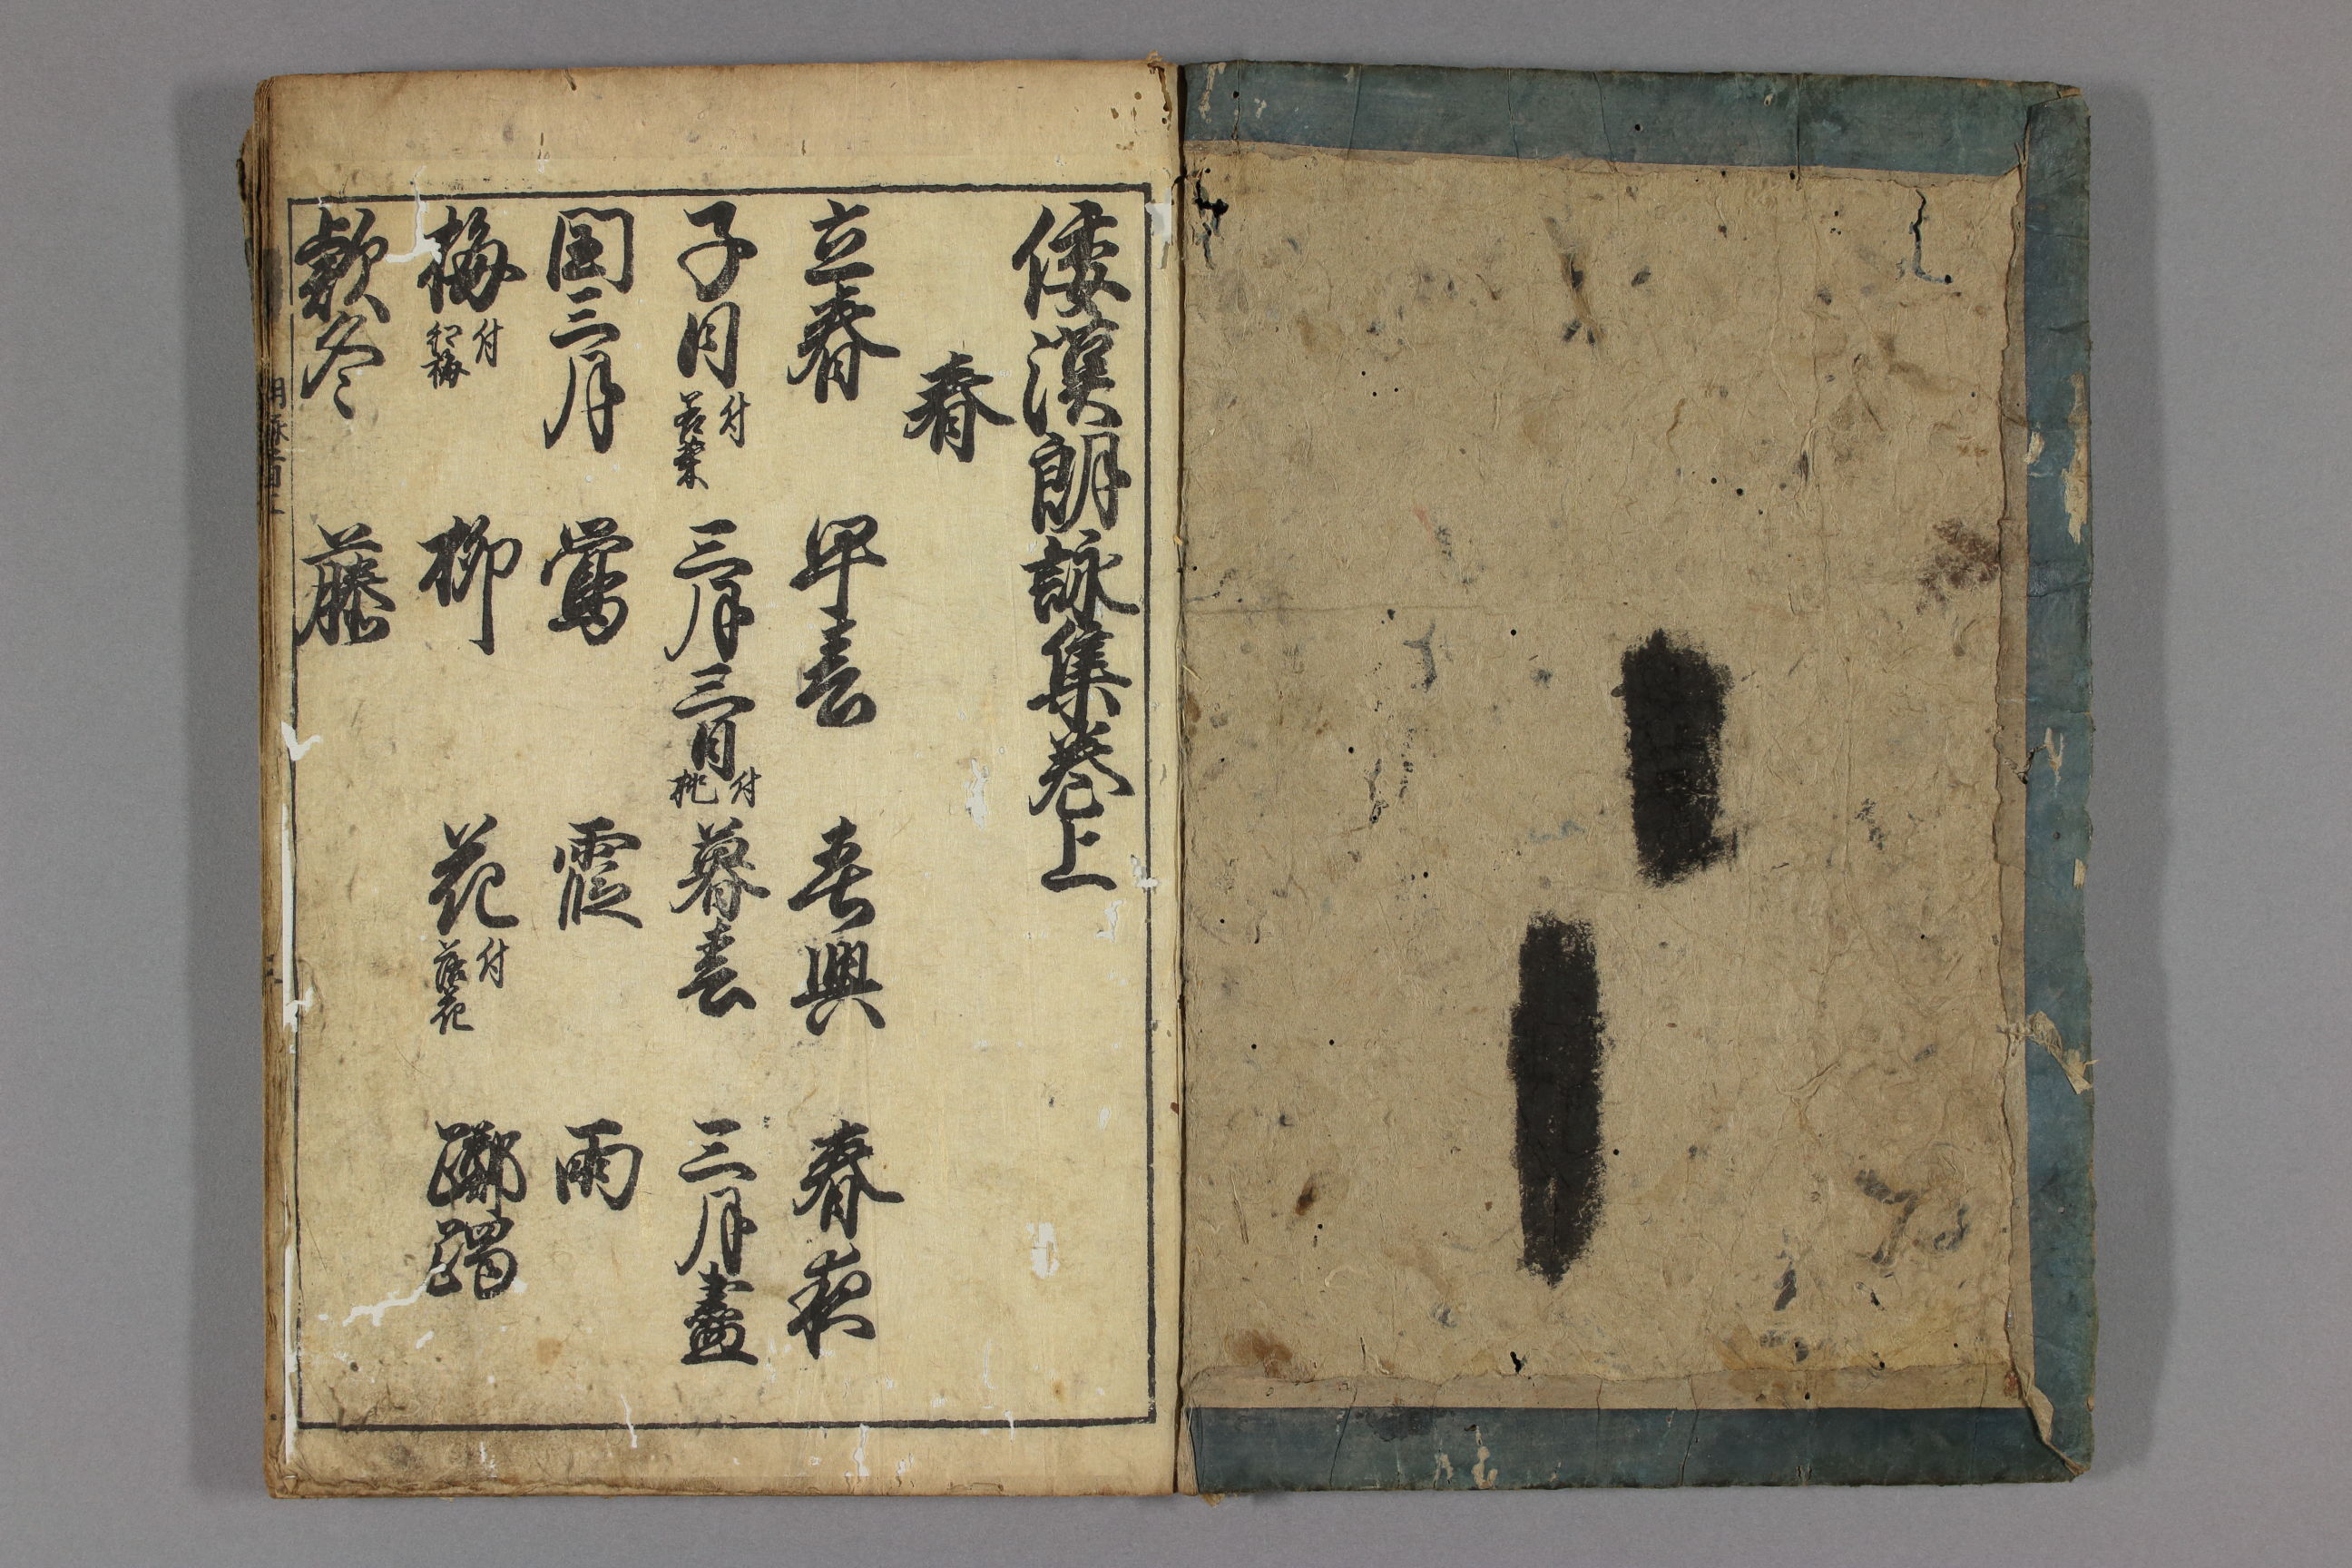 倭漢朗詠集巻上
春
立春 早春 春興 春夜
子日 付若菜 三月三日 付桃 暮春 三月盡
閏三月 鶯 霞 雨
梅 付紅梅 柳 花 付落花 躑躅
欵冬 藤